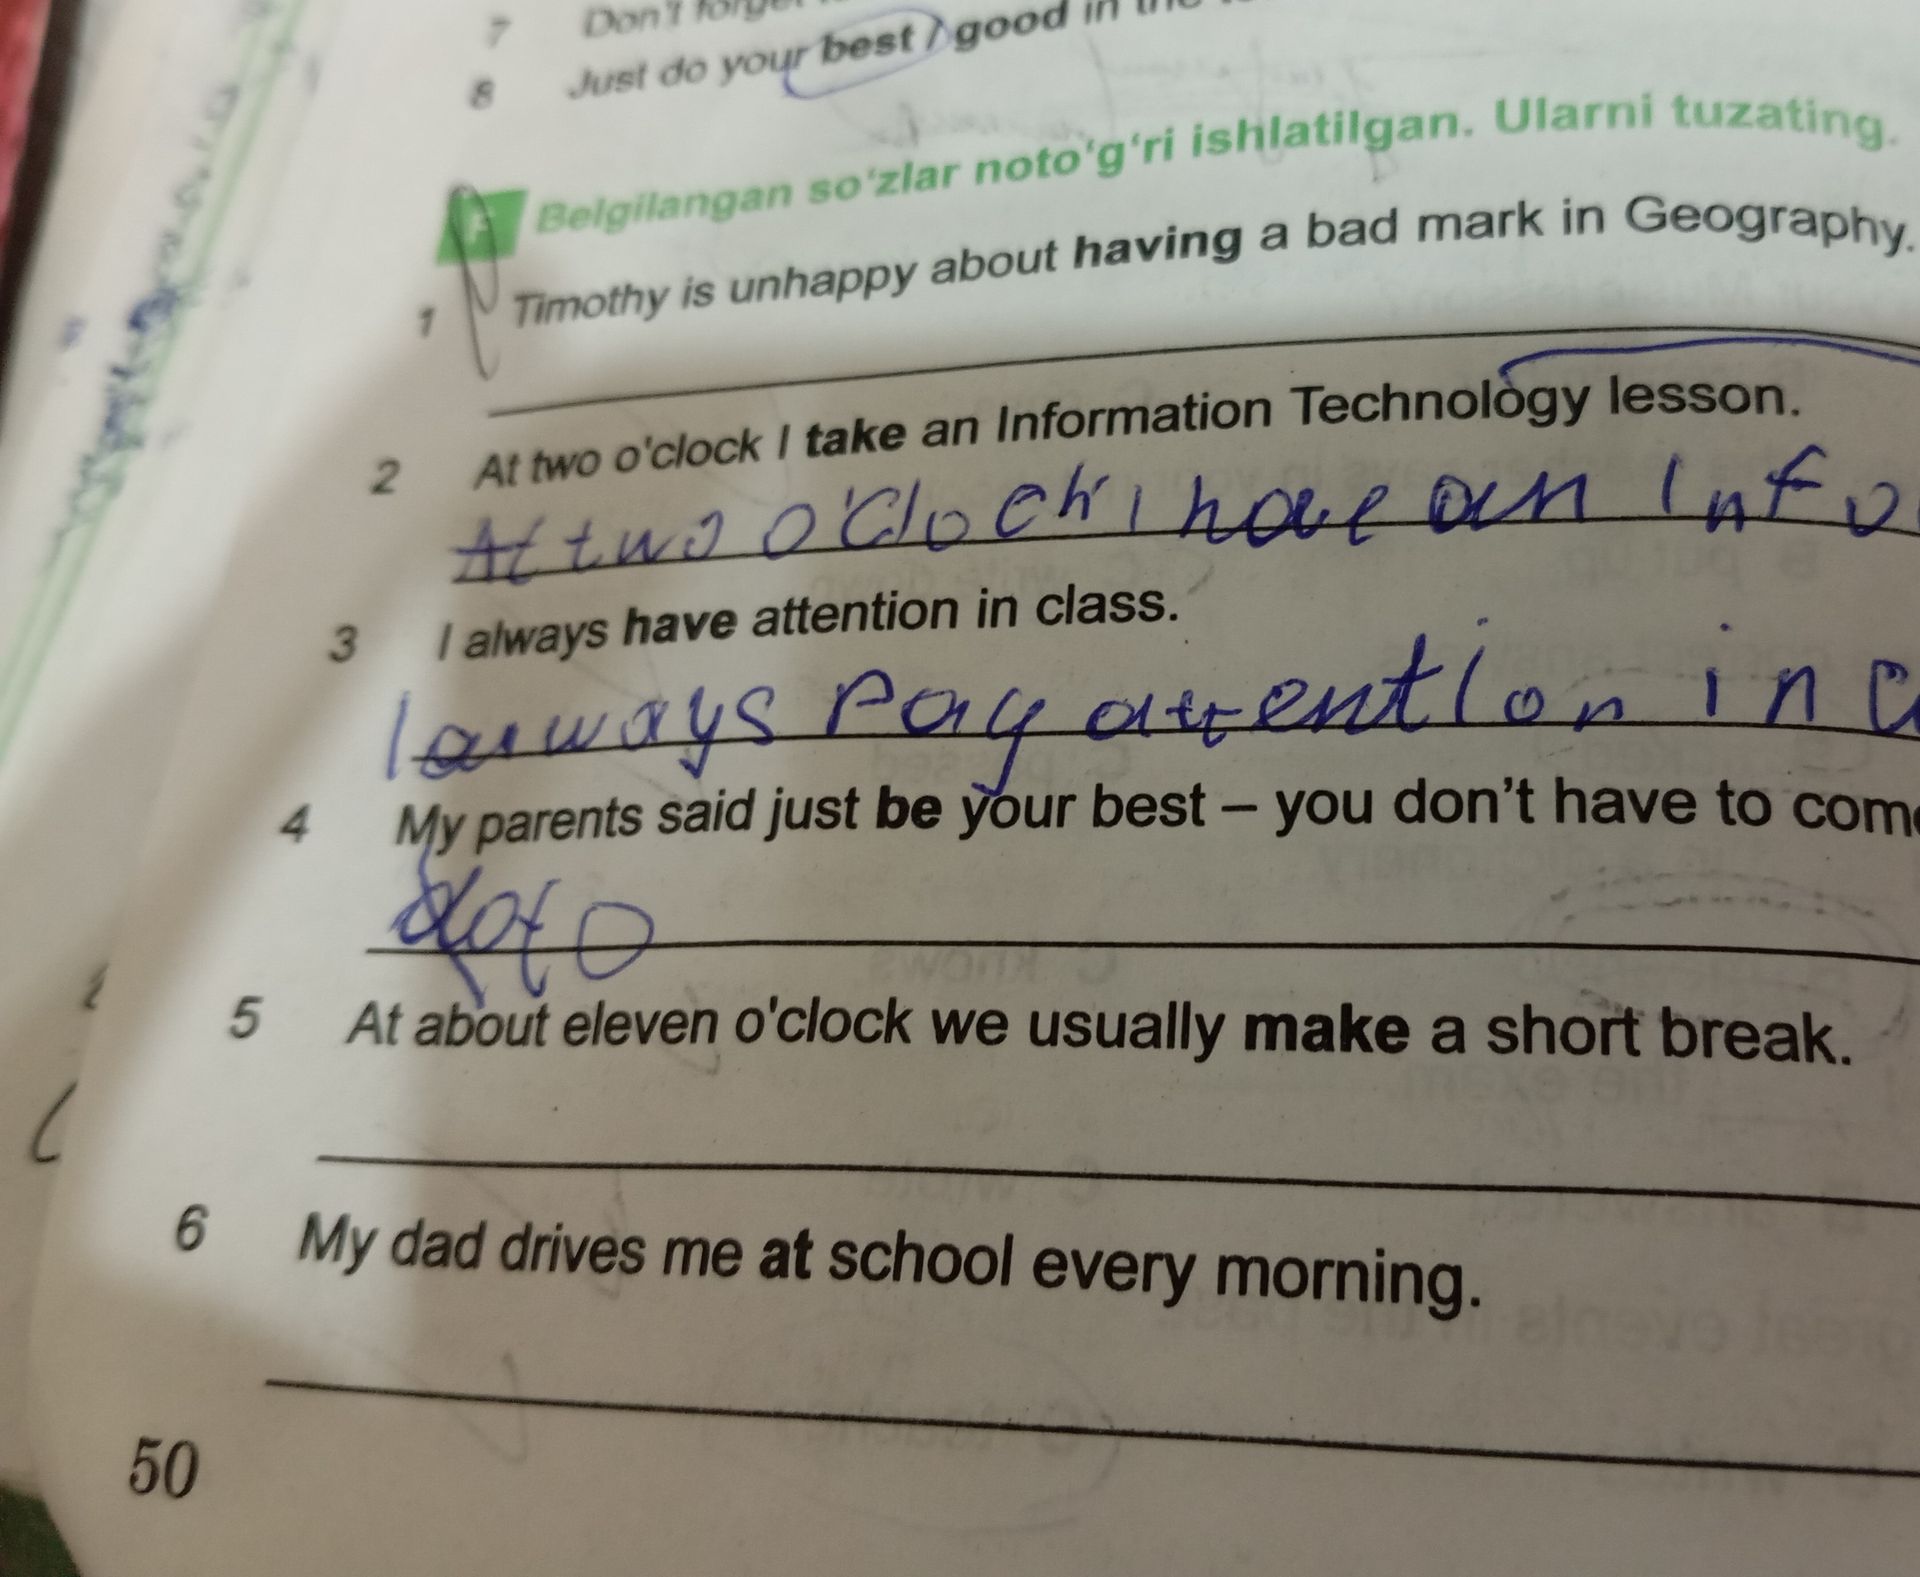 7 Don't forget
8 Just do your best / good in the
F Belgilangan so'zlar noto'g'ri ishlatilgan. Ularni tuzating.
1 Timothy is unhappy about having a bad mark in Geography.
2 At two o'clock I take an Information Technology lesson.
At two o'clock I have an Info
3 I always have attention in class.
I always pay attention in c
4 My parents said just be your best – you don't have to com
5 At about eleven o'clock we usually make a short break.
6 My dad drives me at school every morning.
50